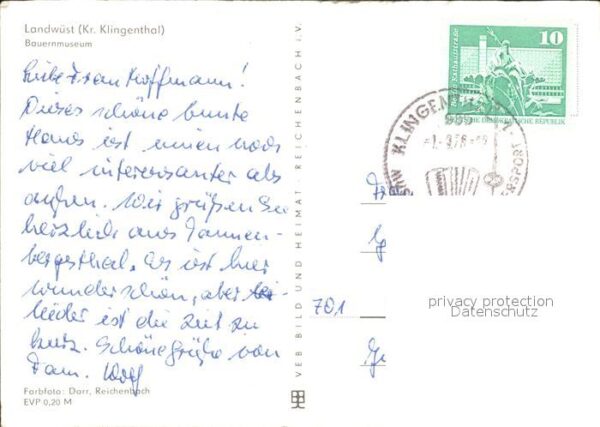 Landwüst (Kr. Klingenthal)
Bauernmuseum
Liebe Frau Hoffmann!
Dieses schöne bunte
Haus ist innen noch
viel interessanter als
außen. Wir grüßen Sie
herzlich aus Tannen-
bergsthal. Es ist hier
wunderschön, aber lei-
leider ist die Zeit zu
kurz. Schöne Grüße von
Fam. Wolf
Farbfoto: Darr, Reichenbach
EVP 0,20 M
VEB BILD UND HEIMAT REICHENBACH i. V.
10
DEUTSCHE DEMOKRATISCHE REPUBLIK
KLINGENTHAL
701
privacy protection
Datenschutz